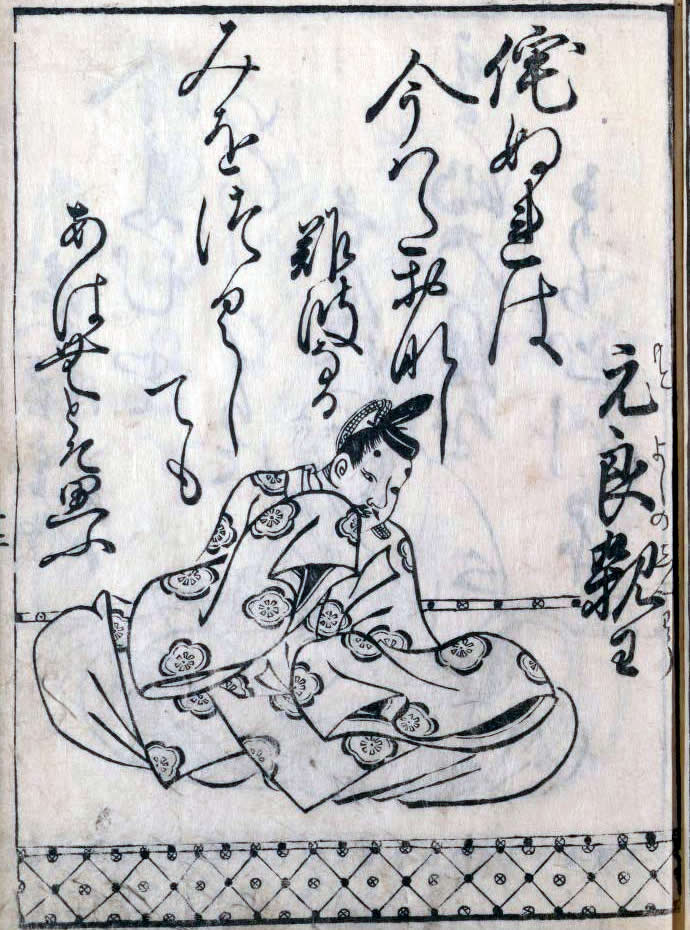 元良親王
侘ぬれは
今はたおなし
難波なる
みをつくし
ても
あはむとそ思ふ